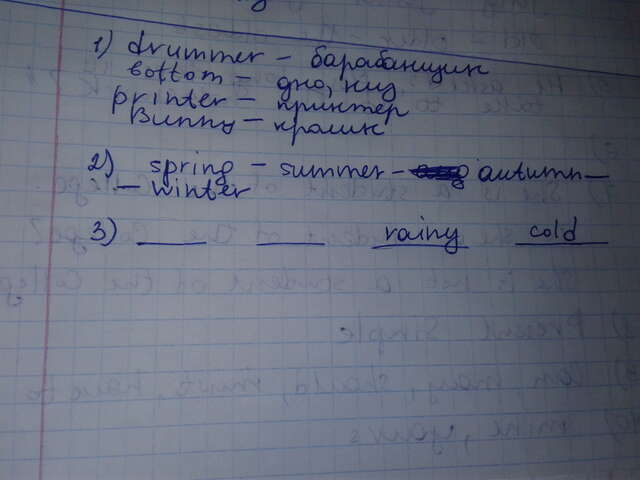 1) drummer - барабанщик
bottom - дно, низ
printer - принтер
Bunny - кролик
2) spring - summer - autumn -
- Winter
3) ___ ___ rainy cold